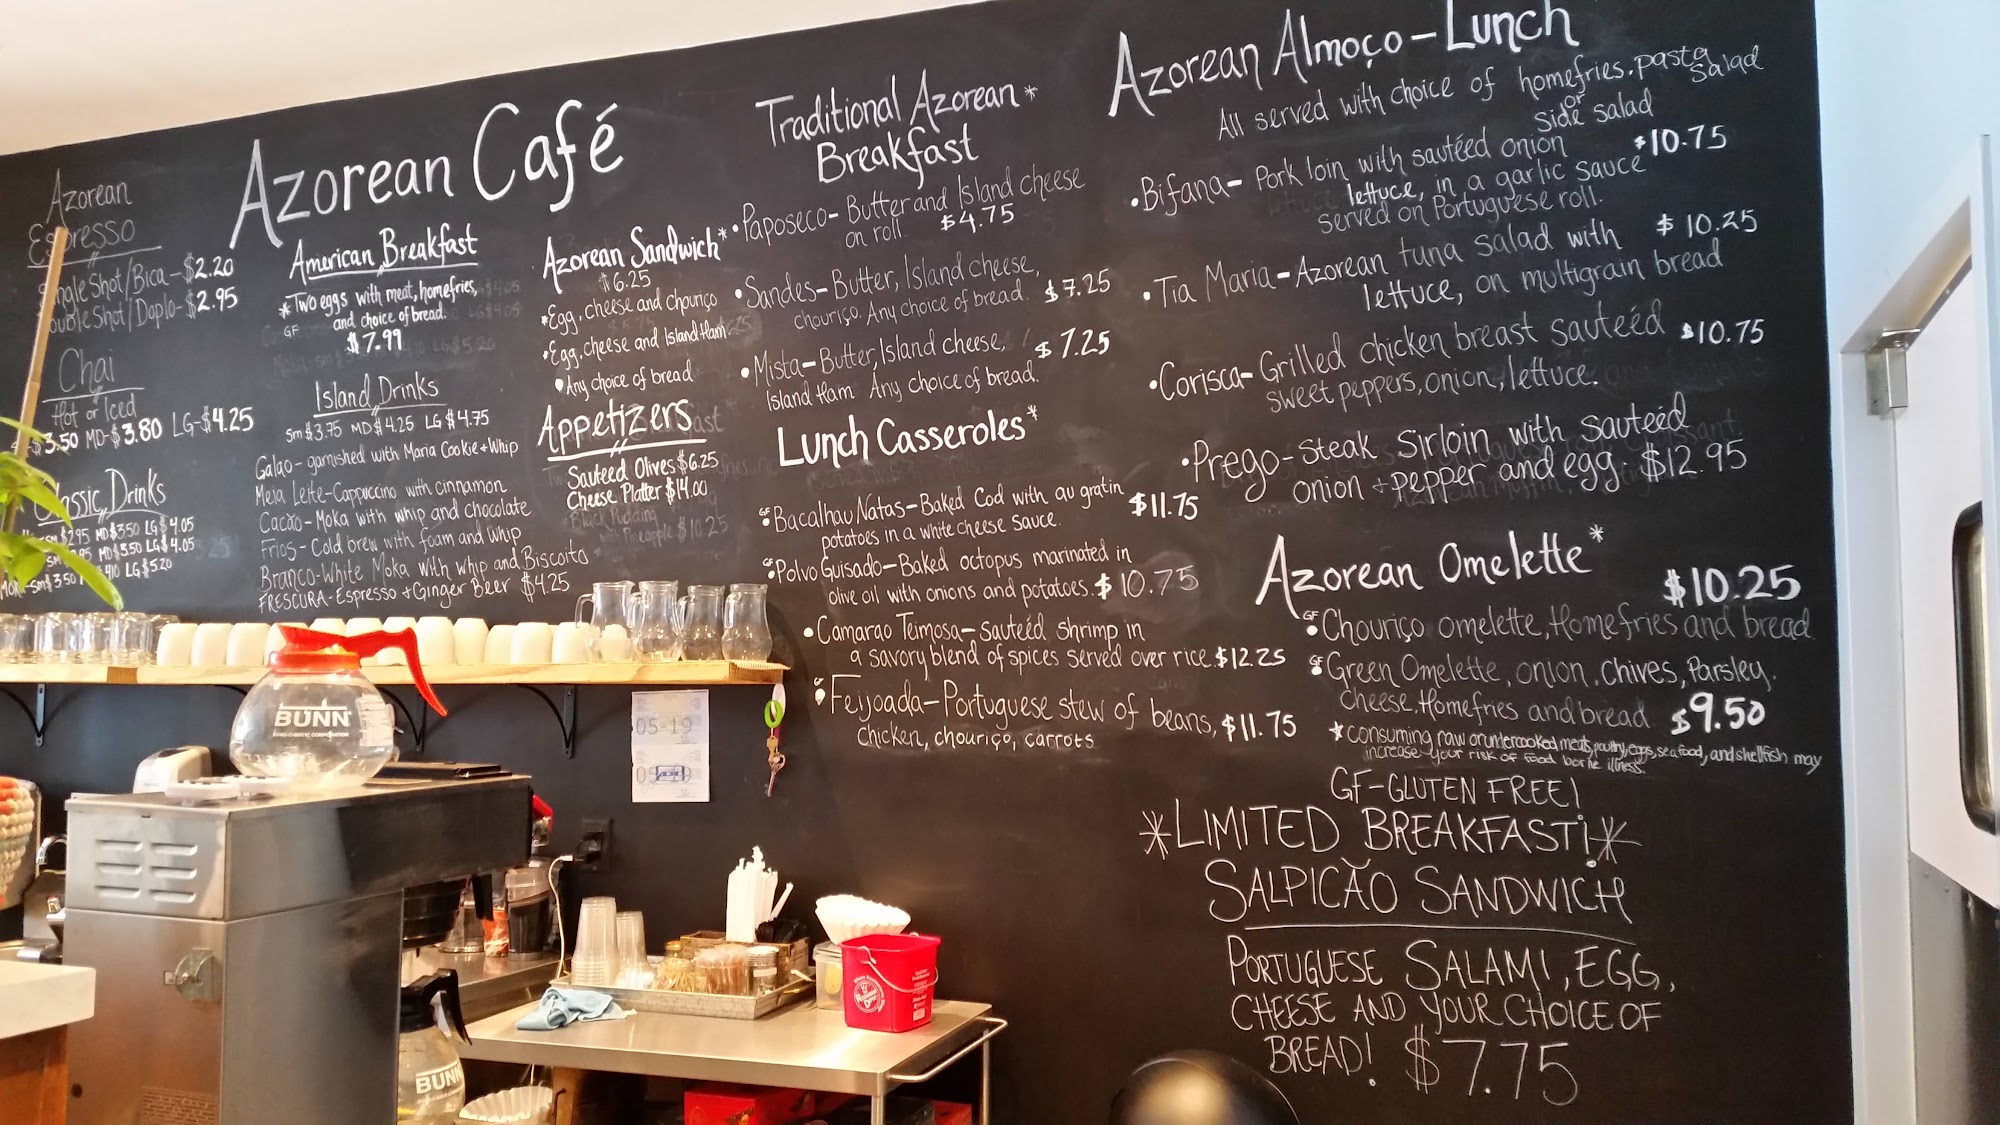 Azorean Café
Azorean
Espresso
Shot/Bica-$2.20
Shot/Doplo-$2.95
Chai
Hot or Iced
$3.50 MD-$3.80 LG-$4.25
Drinks
sm $2.95 MD $3.50 LG $4.05
MD $3.50 LG $4.05
sm $3.50 LG $5.20
American Breakfast
*Two eggs with meat, homefries,
GF and choice of bread.
$7.99
Island Drinks
sm $3.75 MD $4.25 LG $4.75
Galao- garnished with Maria Cookie + Whip
Meia Leite-Cappuccino with cinnamon
Cacao-Moka with whip and chocolate
Frios-Cold brew with foam and whip
Branco-White Moka with whip and Biscoito
FRESCURA-Espresso + Ginger Beer $4.25
Azorean Sandwich*
$6.25
•Egg, cheese and chouriço
•Egg, cheese and Island Ham
•Any choice of bread
Appetizers
Sauteed Olives $6.25
Cheese Platter $14.00
Black Pudding
with Pineapple $10.25
Traditional Azorean*
Breakfast
•Paposeco- Butter and Island cheese
on roll. $4.75
•Sandes- Butter, Island cheese,
chouriço. Any choice of bread. $7.25
•Mista- Butter, Island cheese, $7.25
Island Ham Any choice of bread.
Lunch Casseroles*
GF •Bacalhau Natas-Baked Cod with au gratin $11.75
potatoes in a white cheese sauce.
GF •Polvo Guisado-Baked octopus marinated in
olive oil with onions and potatoes. $10.75
•Camarao Teimosa-sautéed shrimp in
a savory blend of spices served over rice. $12.25
GF •Feijoada-Portuguese stew of beans, $11.75
chicken, chouriço, carrots
Azorean Almoço-Lunch
All served with choice of homefries, pasta salad
or
side salad
•Bifana- Pork loin with sautéed onion $10.75
lettuce, in a garlic sauce
served on Portuguese roll.
•Tia Maria-Azorean tuna salad with $10.25
lettuce, on multigrain bread
•Corisca-Grilled chicken breast sautéed $10.75
sweet peppers, onion, lettuce.
•Prego-Steak Sirloin with sautéed
onion + pepper and egg $12.95
Azorean Omelette*
$10.25
GF •Chouriço omelette, Homefries and bread
GF •Green Omelette, onion, chives, Parsley,
cheese, Homefries and bread $9.50
*consuming raw or undercooked meats, poultry, eggs, seafood, and shellfish may
increase your risk of food borne illness.
GF-GLUTEN FREE!
*LIMITED BREAKFAST!*
SALPICÃO SANDWICH
PORTUGUESE SALAMI, EGG,
CHEESE AND YOUR CHOICE OF
BREAD! $7.75
BUNN
05-19
BUNN